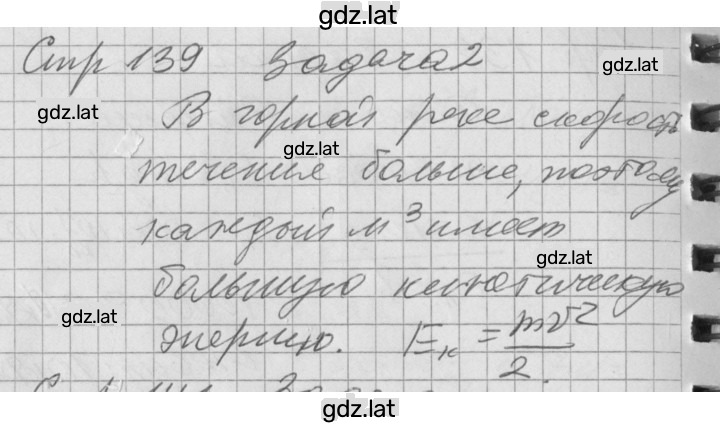 gdz.lat
Стр 139 Задача 2
gdz.lat
gdz.lat
В горной реке скорость
gdz.lat
течения больше, поэтому
каждый м³ имеет
gdz.lat
большую кинетическую
gdz.lat
энергию. Eк = mv²/2.
gdz.lat